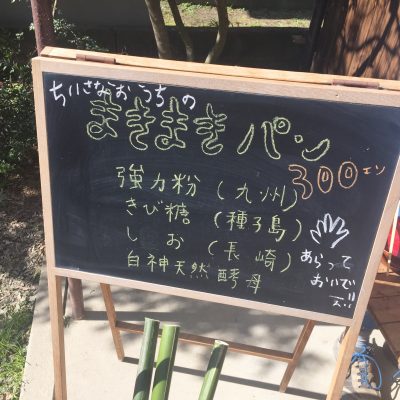 ちいさなおうちの
まきまきパン
300エン
強力粉(九州)
きび糖(種子島)
しお(長崎)
白神天然酵母
あらって
おいで